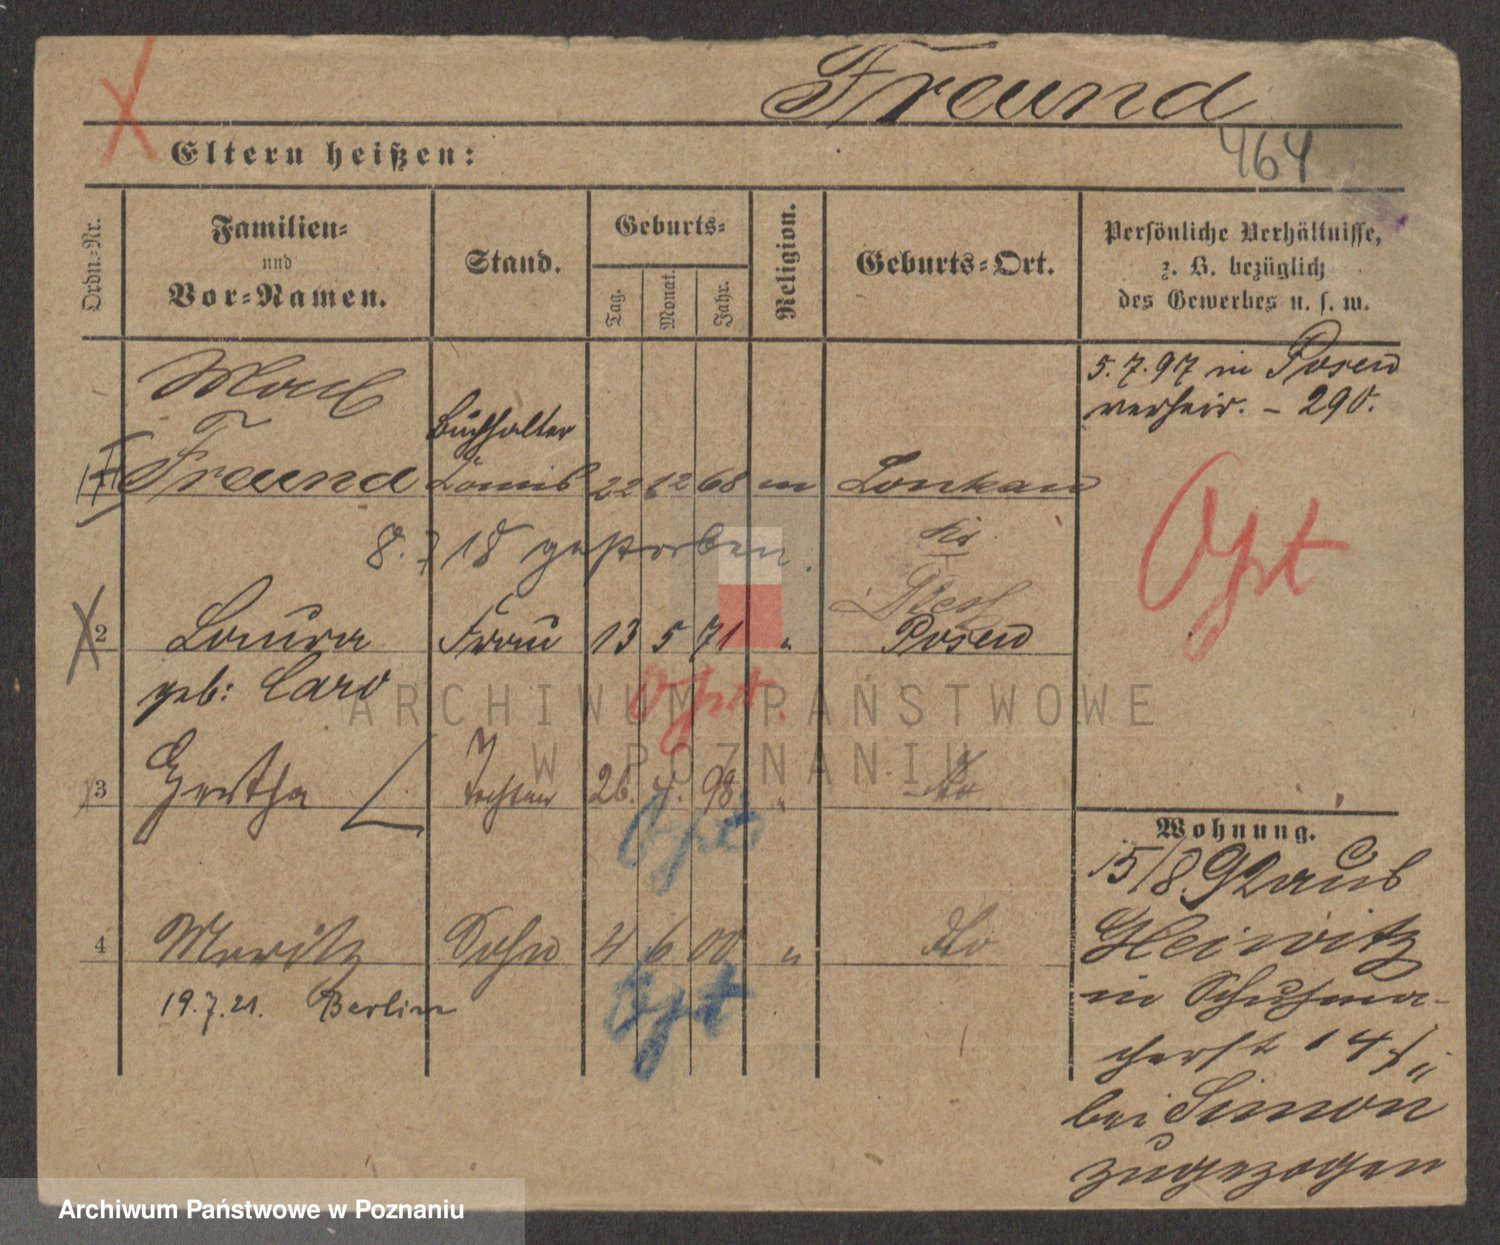 Freund
464
Eltern heißen:
Ordn.-Nr.
Familien-
und
Vor-Namen.
Stand.
Geburts-
Tag.
Monat.
Jahr.
Religion.
Geburts-Ort.
Persönliche Verhältnisse,
z. B. bezüglich
des Gewerbes u. s. w.
5. 7. 97 in Posen
verheir. - 290.
Buchhalter
Freund 22 12 68 m Lonkau
Opt
8. 7 18 gestorben.
2 Laura Frau 13 5 71 " Posen
geb: Caro
Opt.
3 Gertha Tochter 26. 4. 98 " dto
Opt
Wohnung.
15/8 92 aus
Gleiwitz
in Schuhma-
cherst 14
bei Simon
zugezogen
4 Moritz Sohn 4 6 00 " dto
19.7.21. Berlin
Opt
ARCHIWUM PAŃSTWOWE
W POZNANIU
Archiwum Państwowe w Poznaniu